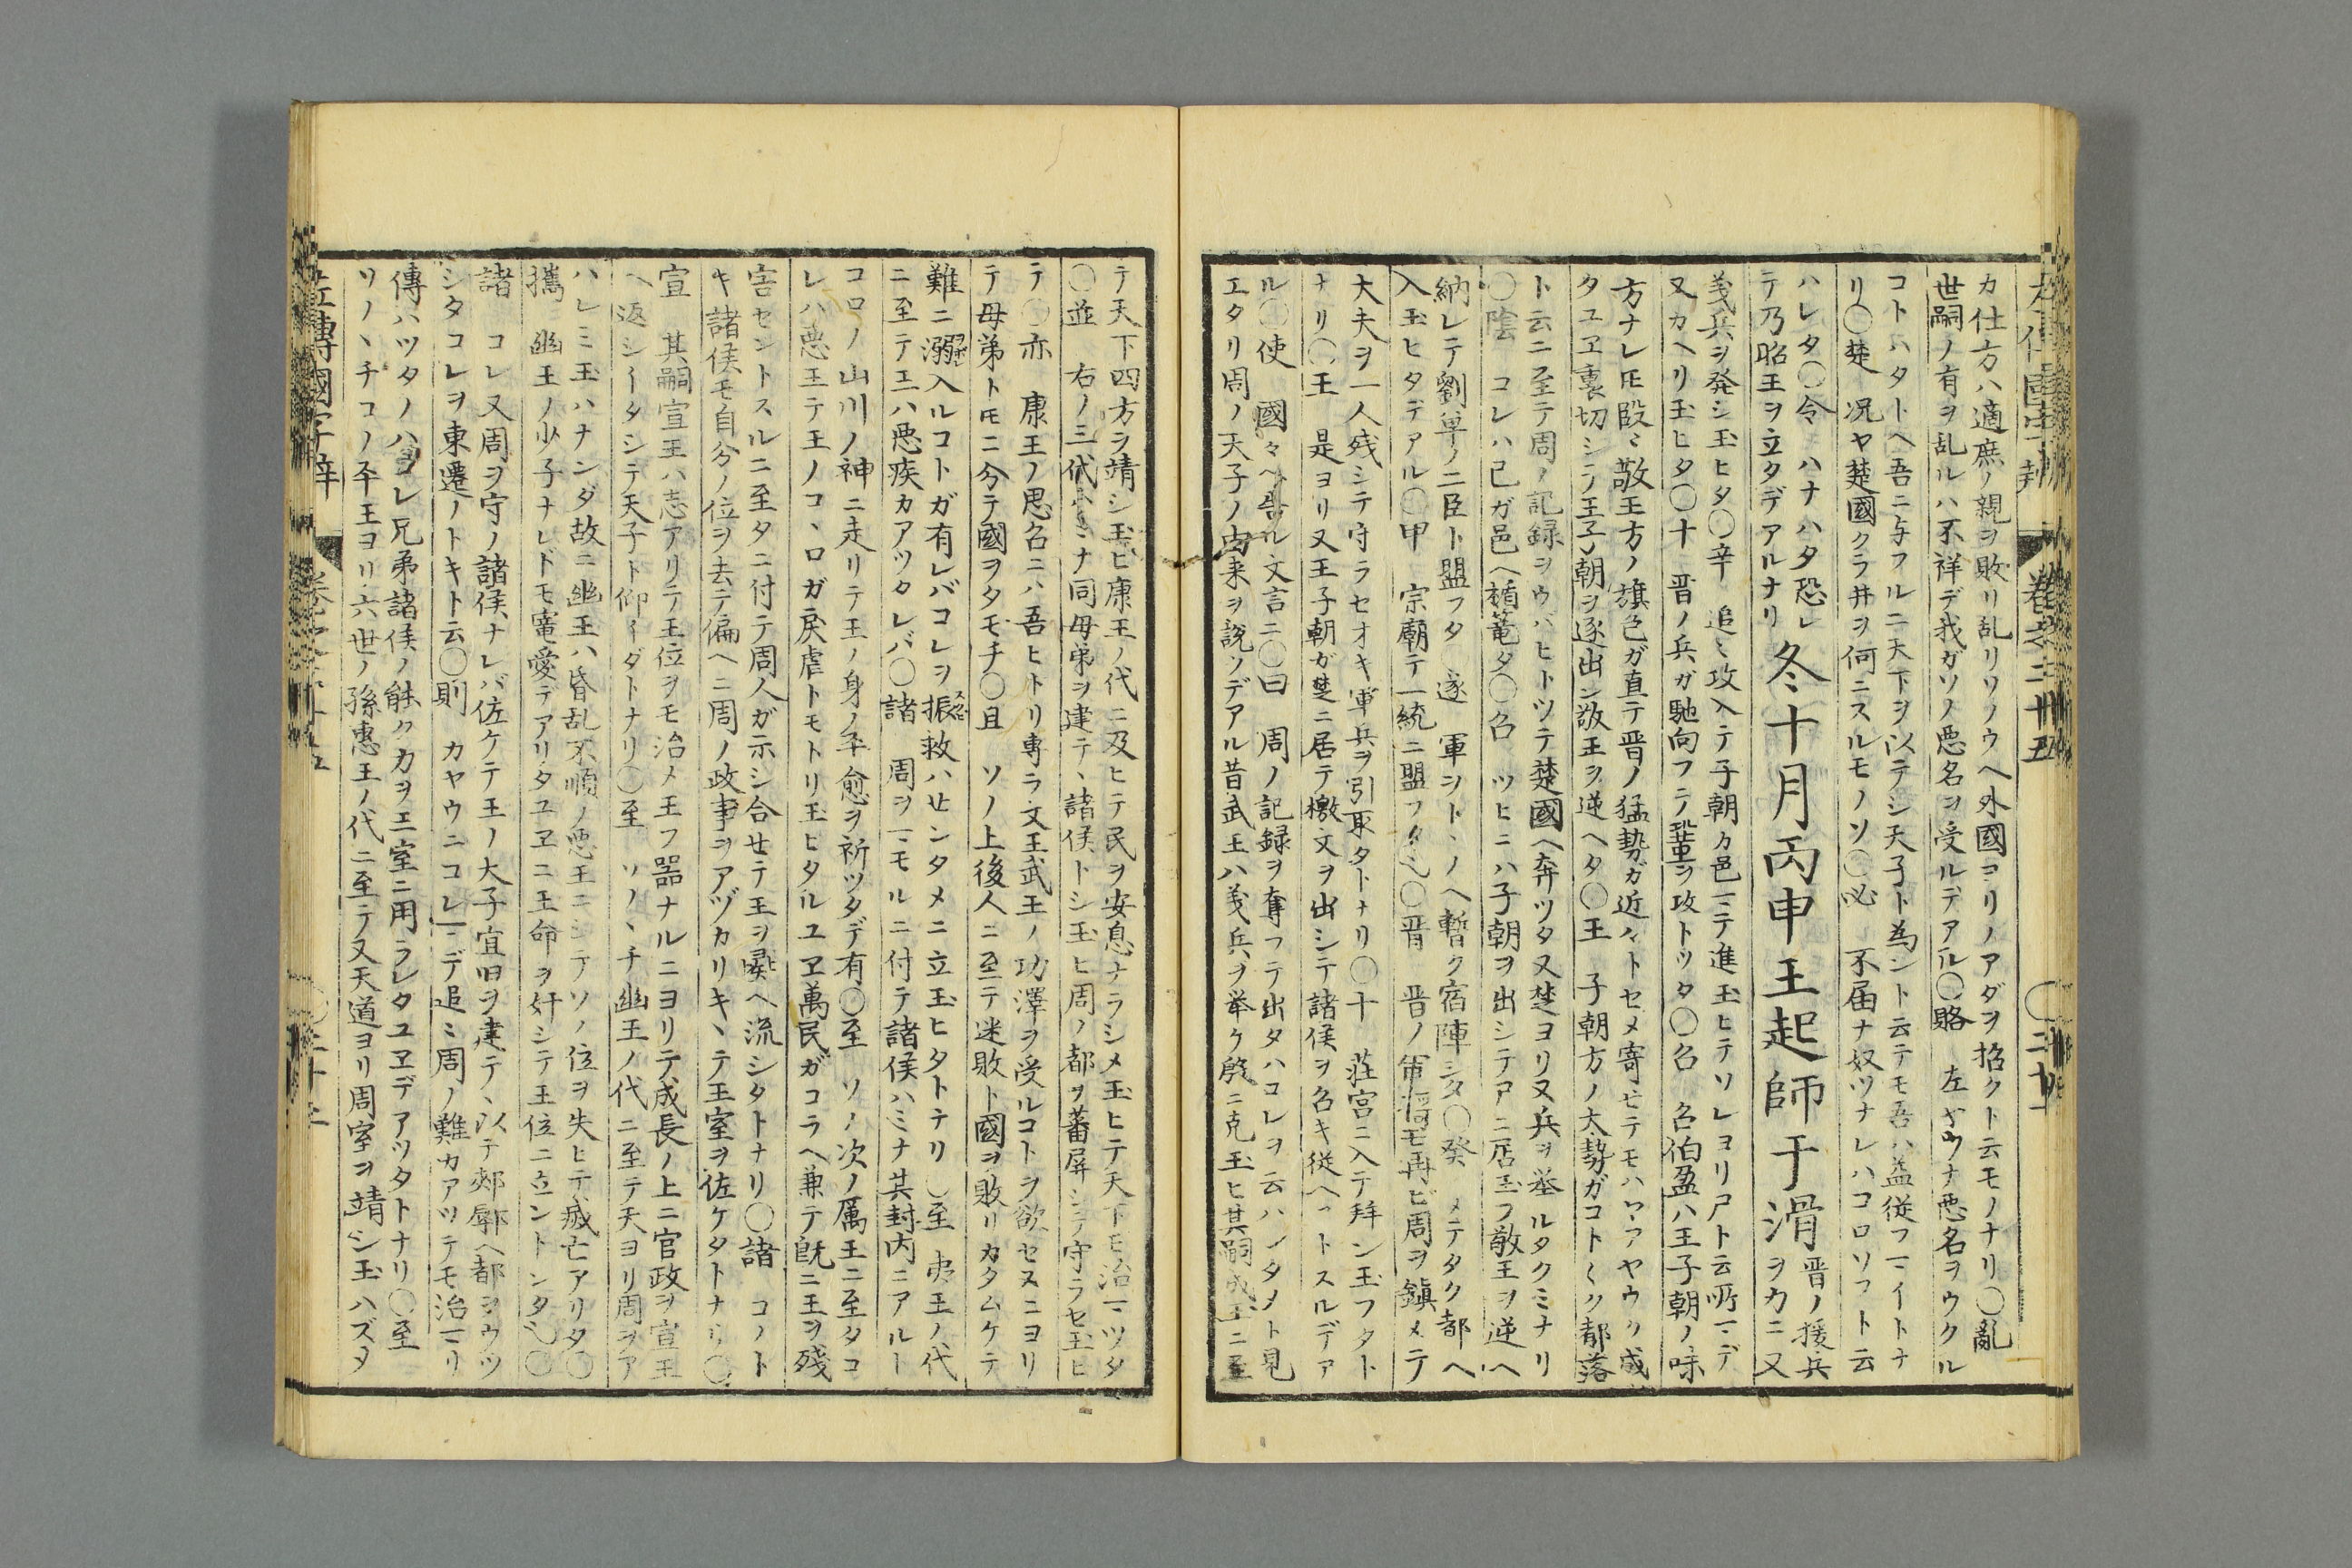 左傳國字辯 卷之二十五
カ仕方ハ適庶ノ親ヲ敗リ乱リソノウヘ外國ヨリノアダヲ招クト云モノナリ〇亂
世嗣ノ有ヲ乱ルハ不祥デ我ガソノ悪名ヲ受ルデアル〇賂 左ヤウナ悪名ヲウクル
コトハタトヘ吾ニ与フルニ天下ヲ以テシ天子ト為ント云テモ吾ハ益従フマイトナ
リ〇楚 况ヤ楚國クラ井ヲ何ニスルモノソ〇必 不届ナ奴ツナレハコロソフト云
ハレタ〇令 ハナハタ恐レ
テ乃昭王ヲ立タデアルナリ
冬十月丙申王起師于滑
晋ノ援兵
ヲカニ又
義兵ヲ発シ玉ヒタ〇辛 追〻攻入テ子朝カ邑マテ進玉ヒテソレヨリ尸ト云所マデ
又カヘリ玉ヒタ〇十 晋ノ兵ガ馳向フテ鞏ヲ攻トツタ〇召 召伯盈ハ王子朝ノ味
方ナレ𪜈段〻敬王方ノ旗色ガ直テ晋ノ猛勢ガ近々トセメ寄セテモハヤアヤウク成
タユヱ裏切シテ王子朝ヲ逐出シ敬王ヲ逆ヘタ〇王 子朝方ノ大勢ガコト〱ク都落
ト云ニ至テ周ノ記録ヲウバヒトツテ楚國ヘ奔ツタ又楚ヨリ又兵ヲ挙ルタクミナリ
〇陰 コレハ己ガ邑ヘ楯篭タ〇召 ツヒニハ子朝ヲ出シテアニ居玉フ敬王ヲ逆ヘ
納レテ劉単ノ二臣ト盟フタ 遂 軍ヲトヽノヘ暫ク宿陣シタ〇癸 メテタク都ヘ
入玉ヒタデアル〇甲 宗廟テ一統ニ盟フタ〇晋 晋ノ軍将モ再ビ周ヲ鎮メテ
大夫ヲ一人残シテ守ラセオキ軍兵ヲ引取タトナリ〇十 荘宮ニ入テ拜シ玉フタト
ナリ〇王 是ヨリ又王子朝ガ楚ニ居テ檄文ヲ出シテ諸侯ヲ召キ従ヘントスルデア
ル〇使 國々ヘ告ル文言ニ〇曰 周ノ記録ヲ奪フテ出タハコレヲ云ハンタメト見
エタリ周ノ天子ノ由来ヲ説ソデアル昔武王ハ義兵ヲ挙ケ殷ニ克玉ヒ其嗣成王ニ至
テ天下四方ヲ靖シ玉ヒ康王ノ代ニ及ヒテ民ヲ安息ナラシメ玉ヒテ天下モ治マツタ
〇並 右ノ三代ミナ同母弟ヲ建テヽ諸侯トシ玉ヒ周ノ都ヲ蕃屏シテ守ラセ玉ヒ
テ〇亦 康王ノ思召ニハ吾ヒトリ専ラ文王武王ノ功澤ヲ受ルコトヲ欲セヌニヨリ
テ母弟ト𪜈ニ分テ國ヲタモチ〇且 ソノ上後人ニ至テ迷敗ト國ヲ敗リカタムケテ
難ニ溺入ルコトガ有レバコレヲ振救ハセンタメニ立玉ヒタトナリ〇至 夷王ノ代
ニ至テ王ハ悪疾カアツタレバ〇諸 周ヲマモルニ付テ諸侯ハミナ其封内ニアルト
コロノ山川ノ神ニ走リテ王ノ身ノ平愈ヲ祈ツタデ有〇至 ソノ次ノ厲王ニ至タコ
レハ悪王テ王ノコヽロガ戻虐トモトリ玉ヒタルユヱ萬民ガコラヘ兼テ既ニ王ヲ残
害セントスルニ至タニ付テ周人ガ示シ合セテ王ヲ彘ヘ流シタトナリ〇諸 コノト
キ諸侯モ自分ノ位ヲ去テ偏ヘニ周ノ政事ヲアヅカリキヽテ王室ヲ佐ケタトナリ〇
宣 其嗣宣王ハ志アリテ王位ヲモ治メ玉フ器ナルニヨリテ成長ノ上ニ官政ヲ宣王
ヘ返シイタシテ天子ト仰イダトナリ〇至 ソノヽチ幽王ノ代ニ至テ天ヨリ周ヲア
ハレミ玉ハナンダ故ニ幽王ハ昏乱不順ノ悪王ニシテソノ位ヲ失ヒテ滅亡アリタ〇
攜 幽王ノ少子ナレドモ寵愛デアリタユヱニ王命ヲ奸シテ王位ニ立ントシタ〇
諸 コレ又周ヲ守ノ諸侯ナレバ佐ケテ王ノ大子宜臼ヲ建テヽ以テ郟鄏ヘ都ヲウツ
シタコレヲ東遷ノトキト云〇則 カヤウニコレマデ追〻周ノ難カアツテモ治マリ
傳ハツタノハコレ兄弟諸侯ノ能ク力ヲ王室ニ用ラレタユヱデアツタトナリ〇至
ソノヽチコノ平王ヨリ六世ノ孫惠王ノ代ニ至テ又天道ヨリ周室ヲ靖シ玉ハズタ
左傳國字辯